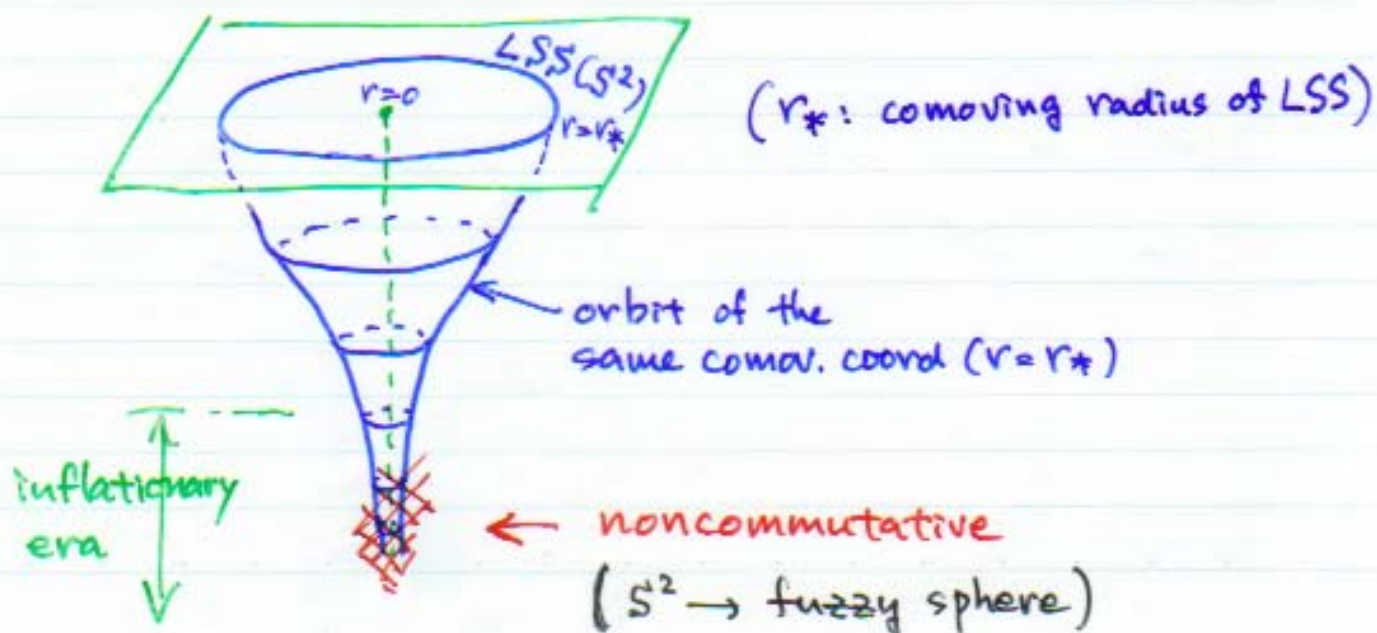 LSS(S²)
r=0
r=r*
(r* : comoving radius of LSS)
orbit of the
same comov. coord (r=r*)
inflationary
era
noncommutative
(S² → fuzzy sphere)